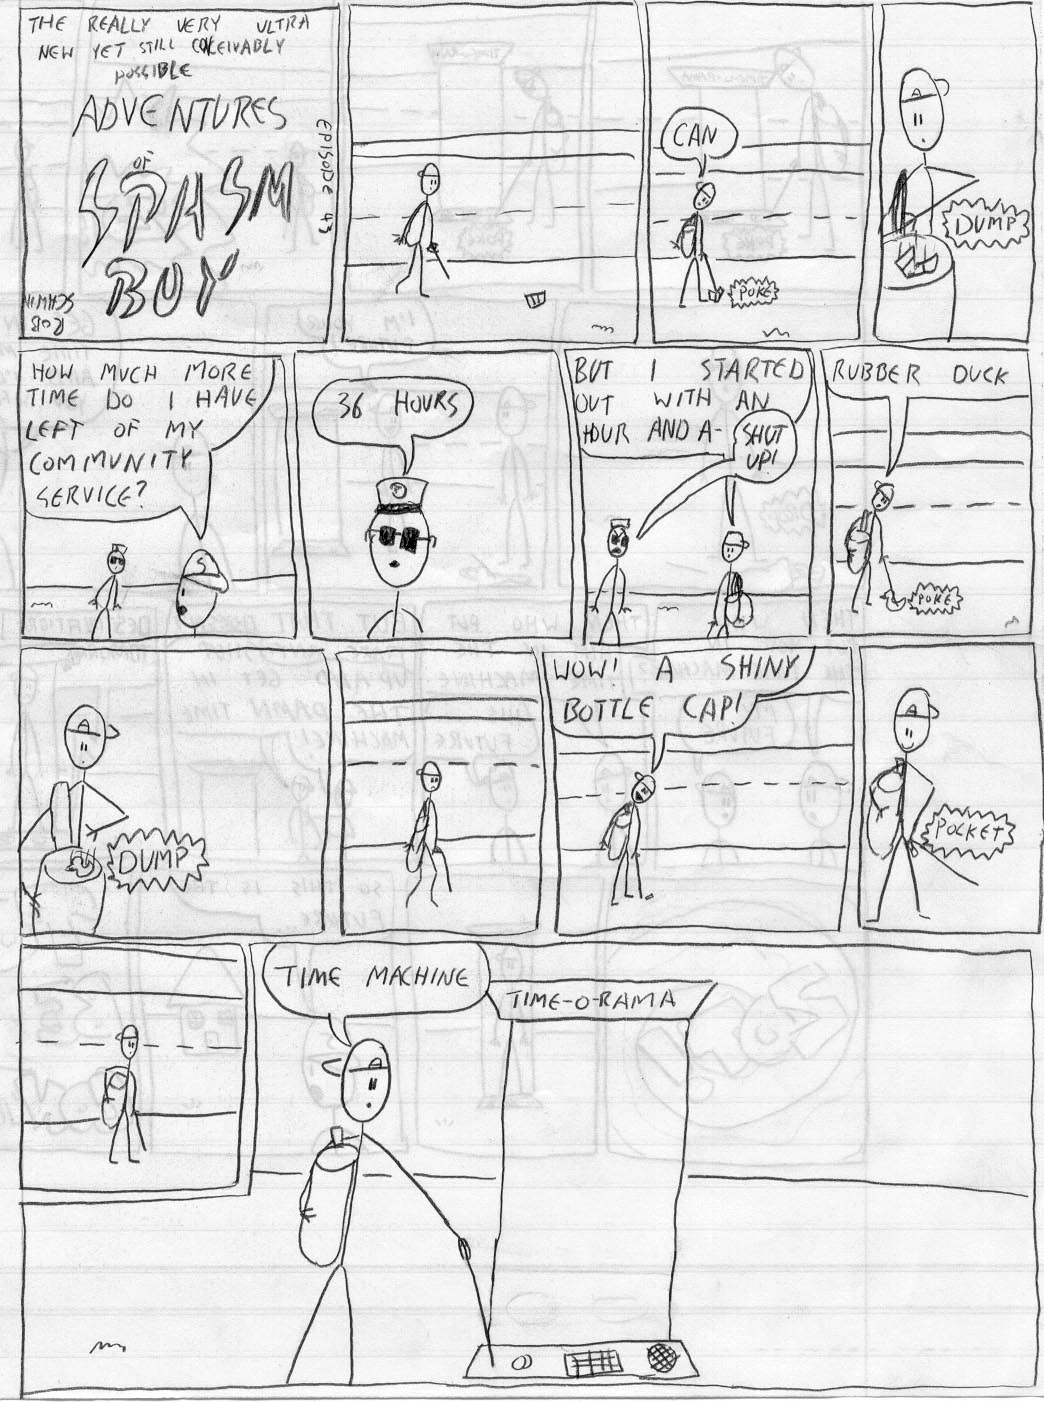 THE REALLY VERY ULTRA
NEW YET STILL CONCEIVABLY
POSSIBLE
ADVENTURES
OF
SPASM
BOY
EPISODE 43
ROB
CAN
POKE
DUMP
HOW MUCH MORE
TIME DO I HAVE
LEFT OF MY
COMMUNITY
SERVICE?
36 HOURS
BUT I STARTED
OUT WITH AN
HOUR AND A-
SHUT
UP!
RUBBER DUCK
POKE
DUMP
WOW! A SHINY
BOTTLE CAP!
POCKET
TIME MACHINE
TIME-O-RAMA